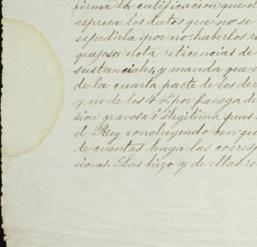 firma la calificacion que d
espresa los datos que no se
espedirla por no haberlos re
que por nota reticencias de
sustanciales, y manda que s
de la cuarta parte de los de
y no de los 4 por fanega de
sion gravosa é ilegitima pues
el Rey, concluyendo con que
de cuentas haga las corresp
ciones. Las hizo y de ellas re